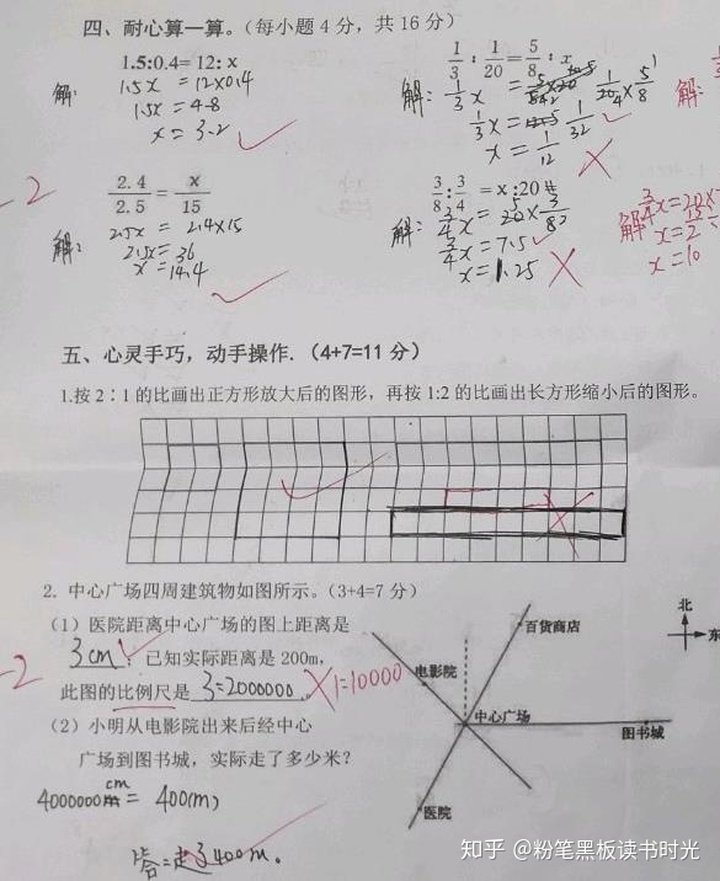 四、耐心算一算。（每小题 4 分，共 16 分）
1.5:0.4= 12: x
解: 1.5x = 12×0.4
1.5x = 4.8
x = 3.2
1/3 : 1/20 = 5/8 : x
解: 1/3 x = 1/20 × 5/8
1/3 x = 1/32
x = 1/12
解:
-2
2.4/2.5 = x/15
解: 2.5x = 2.4×15
2.5x = 36
x = 14.4
3/8 : 3/4 = x :20
解: 3/4 x = 20×3/8
3/4 x = 7.5
x = 1.25
解 3/4 x = 20×
x = 10
五、心灵手巧，动手操作.（4+7=11 分）
1.按 2∶1 的比画出正方形放大后的图形，再按 1:2 的比画出长方形缩小后的图形。
2. 中心广场四周建筑物如图所示。（3+4=7 分）
（1）医院距离中心广场的图上距离是
3cm. 已知实际距离是 200m，
-2
此图的比例尺是 3=2000000 。 1=10000
（2）小明从电影院出来后经中心
广场到图书城，实际走了多少米?
4000000cm = 400(m)
答=走了400m。
北
东
百货商店
电影院
中心广场
图书城
医院
知乎 @粉笔黑板读书时光